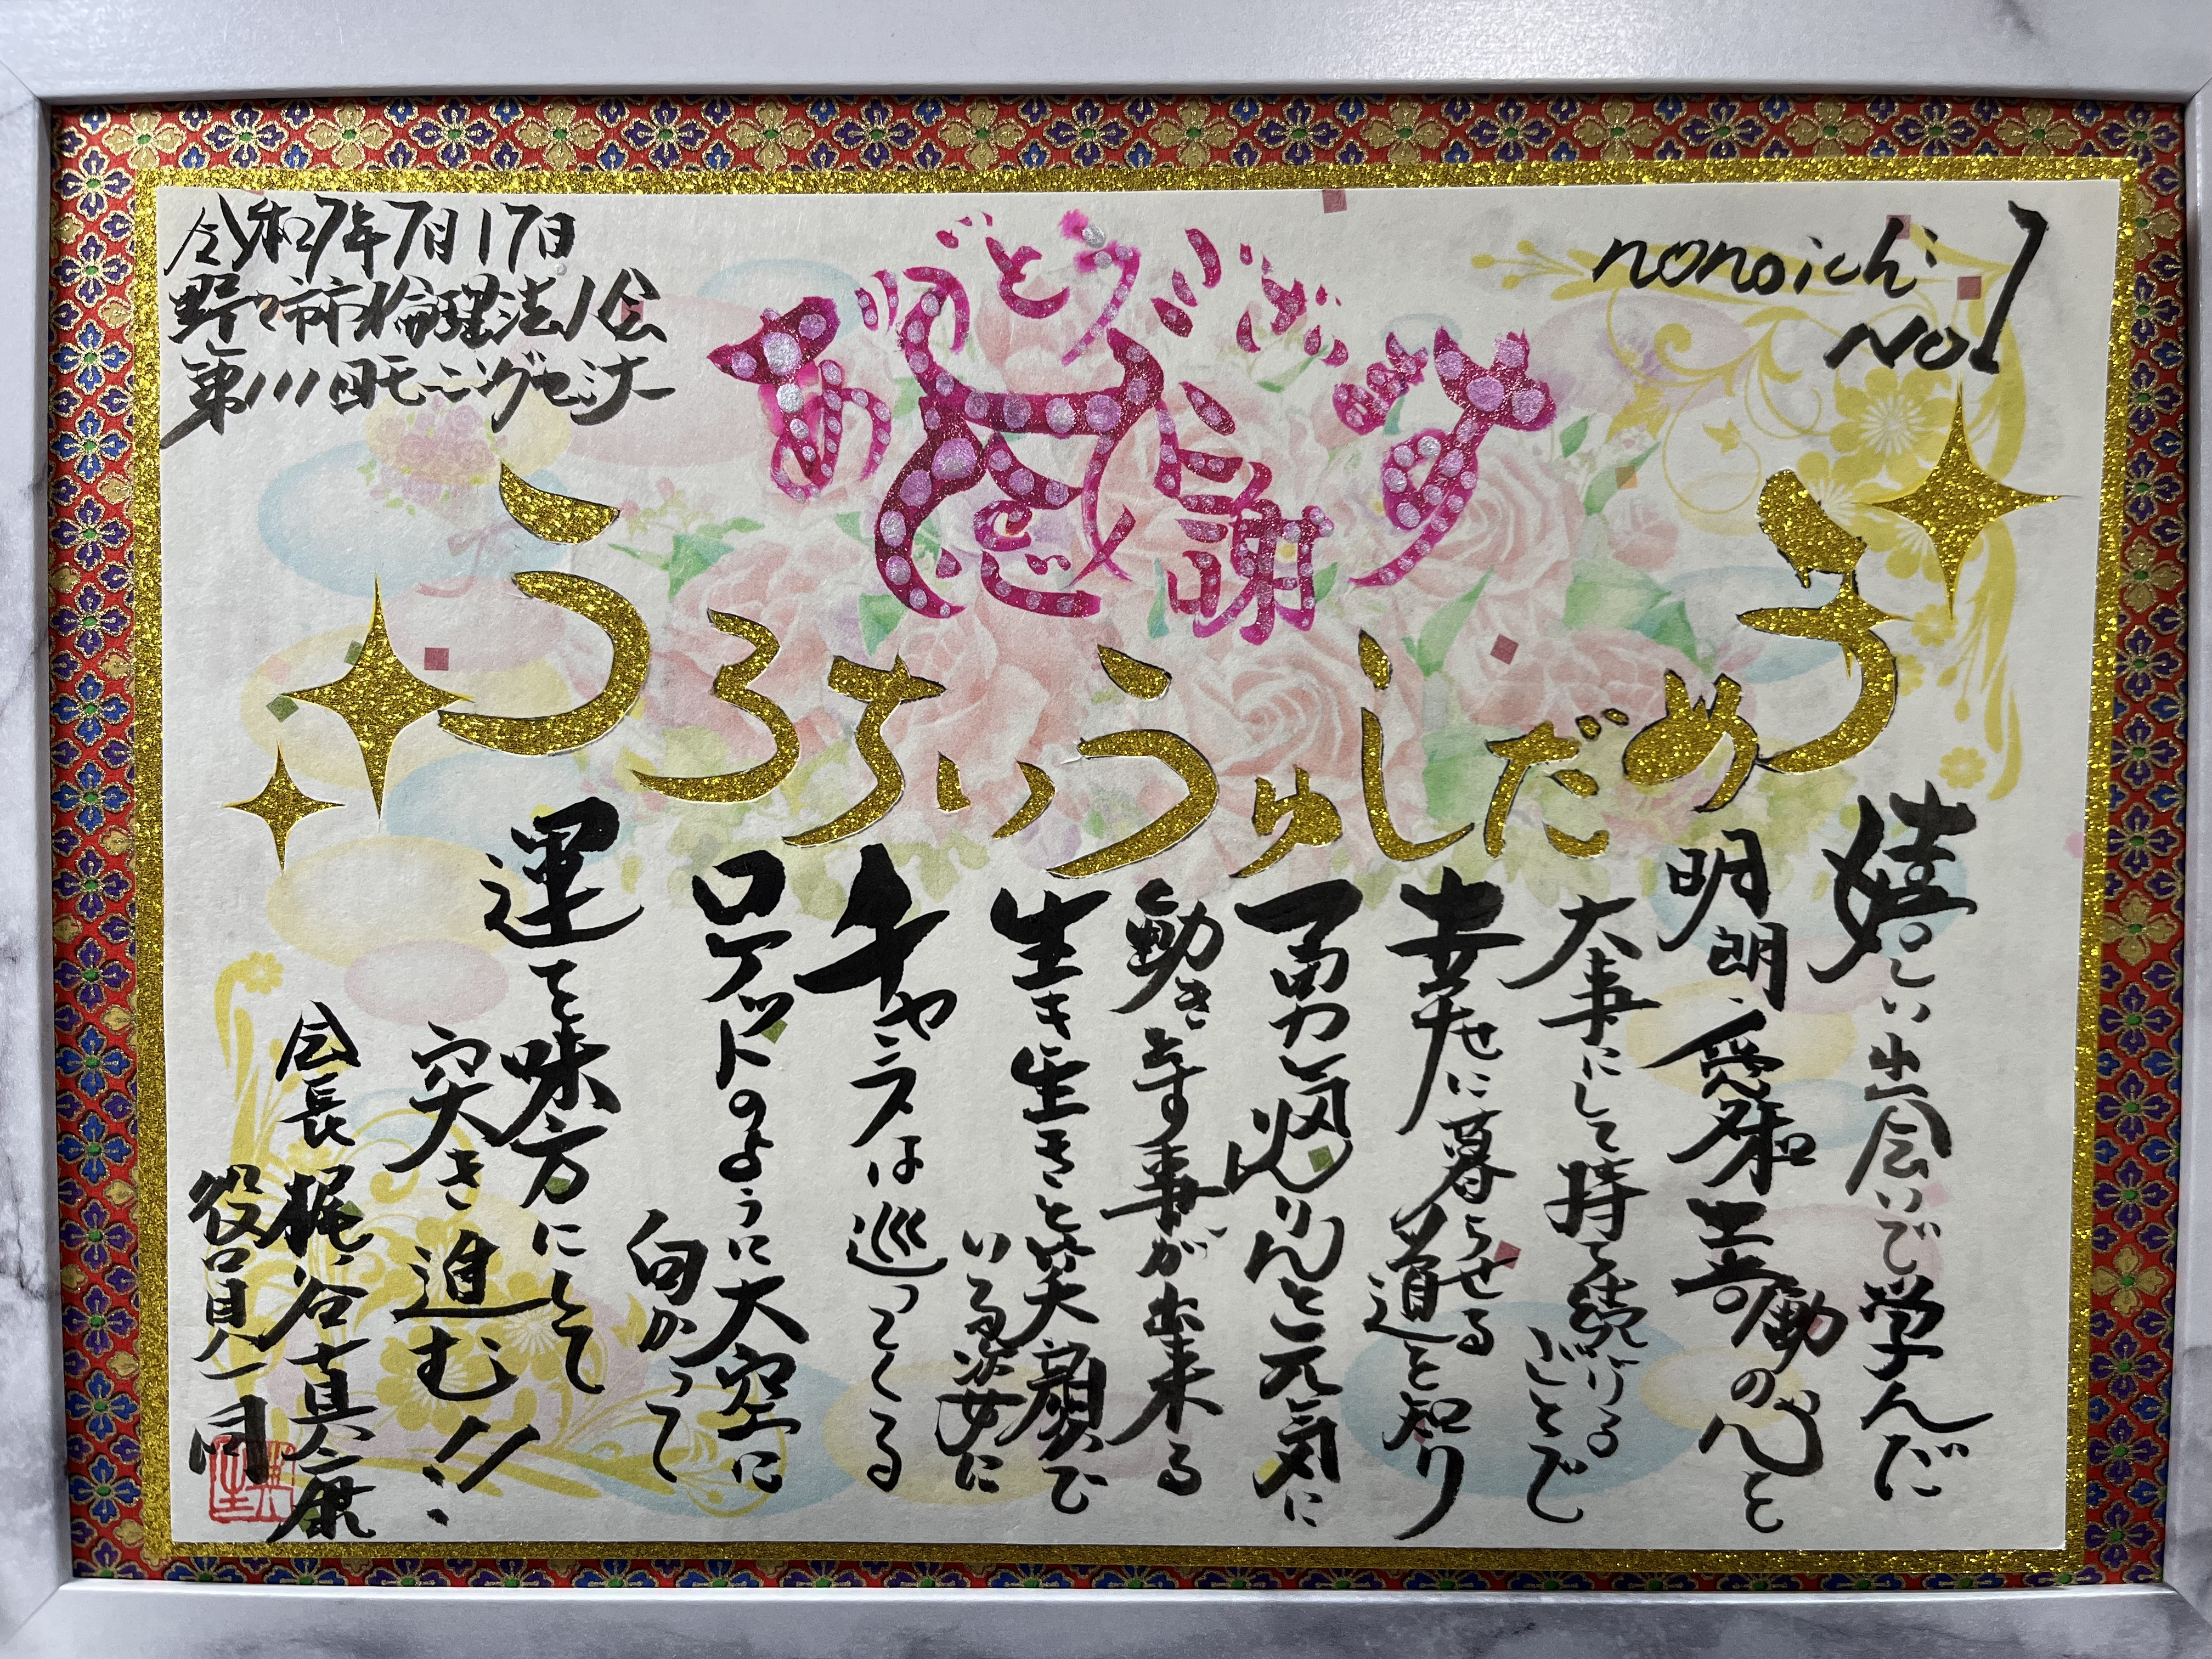 nonoichi
No.1
ありがとうございます
感謝
令和7年7月17日
野々市市倫理法人会
第111回モーニングセミナー
うめだしゅういちろう
嬉しい出会いで学んだ
明朗・愛和・喜働の心を
大事にして持ち続けることで
幸せに暮らせる道を知り
勇気凛りんと元気に
動き出す事が出来る
生き生きと笑顔で
いる姿に
チャンスは巡ってくる
ロケットのように大空に
向かって
運を味方にして
突き進む!!
会長 梶谷真康
役員一同